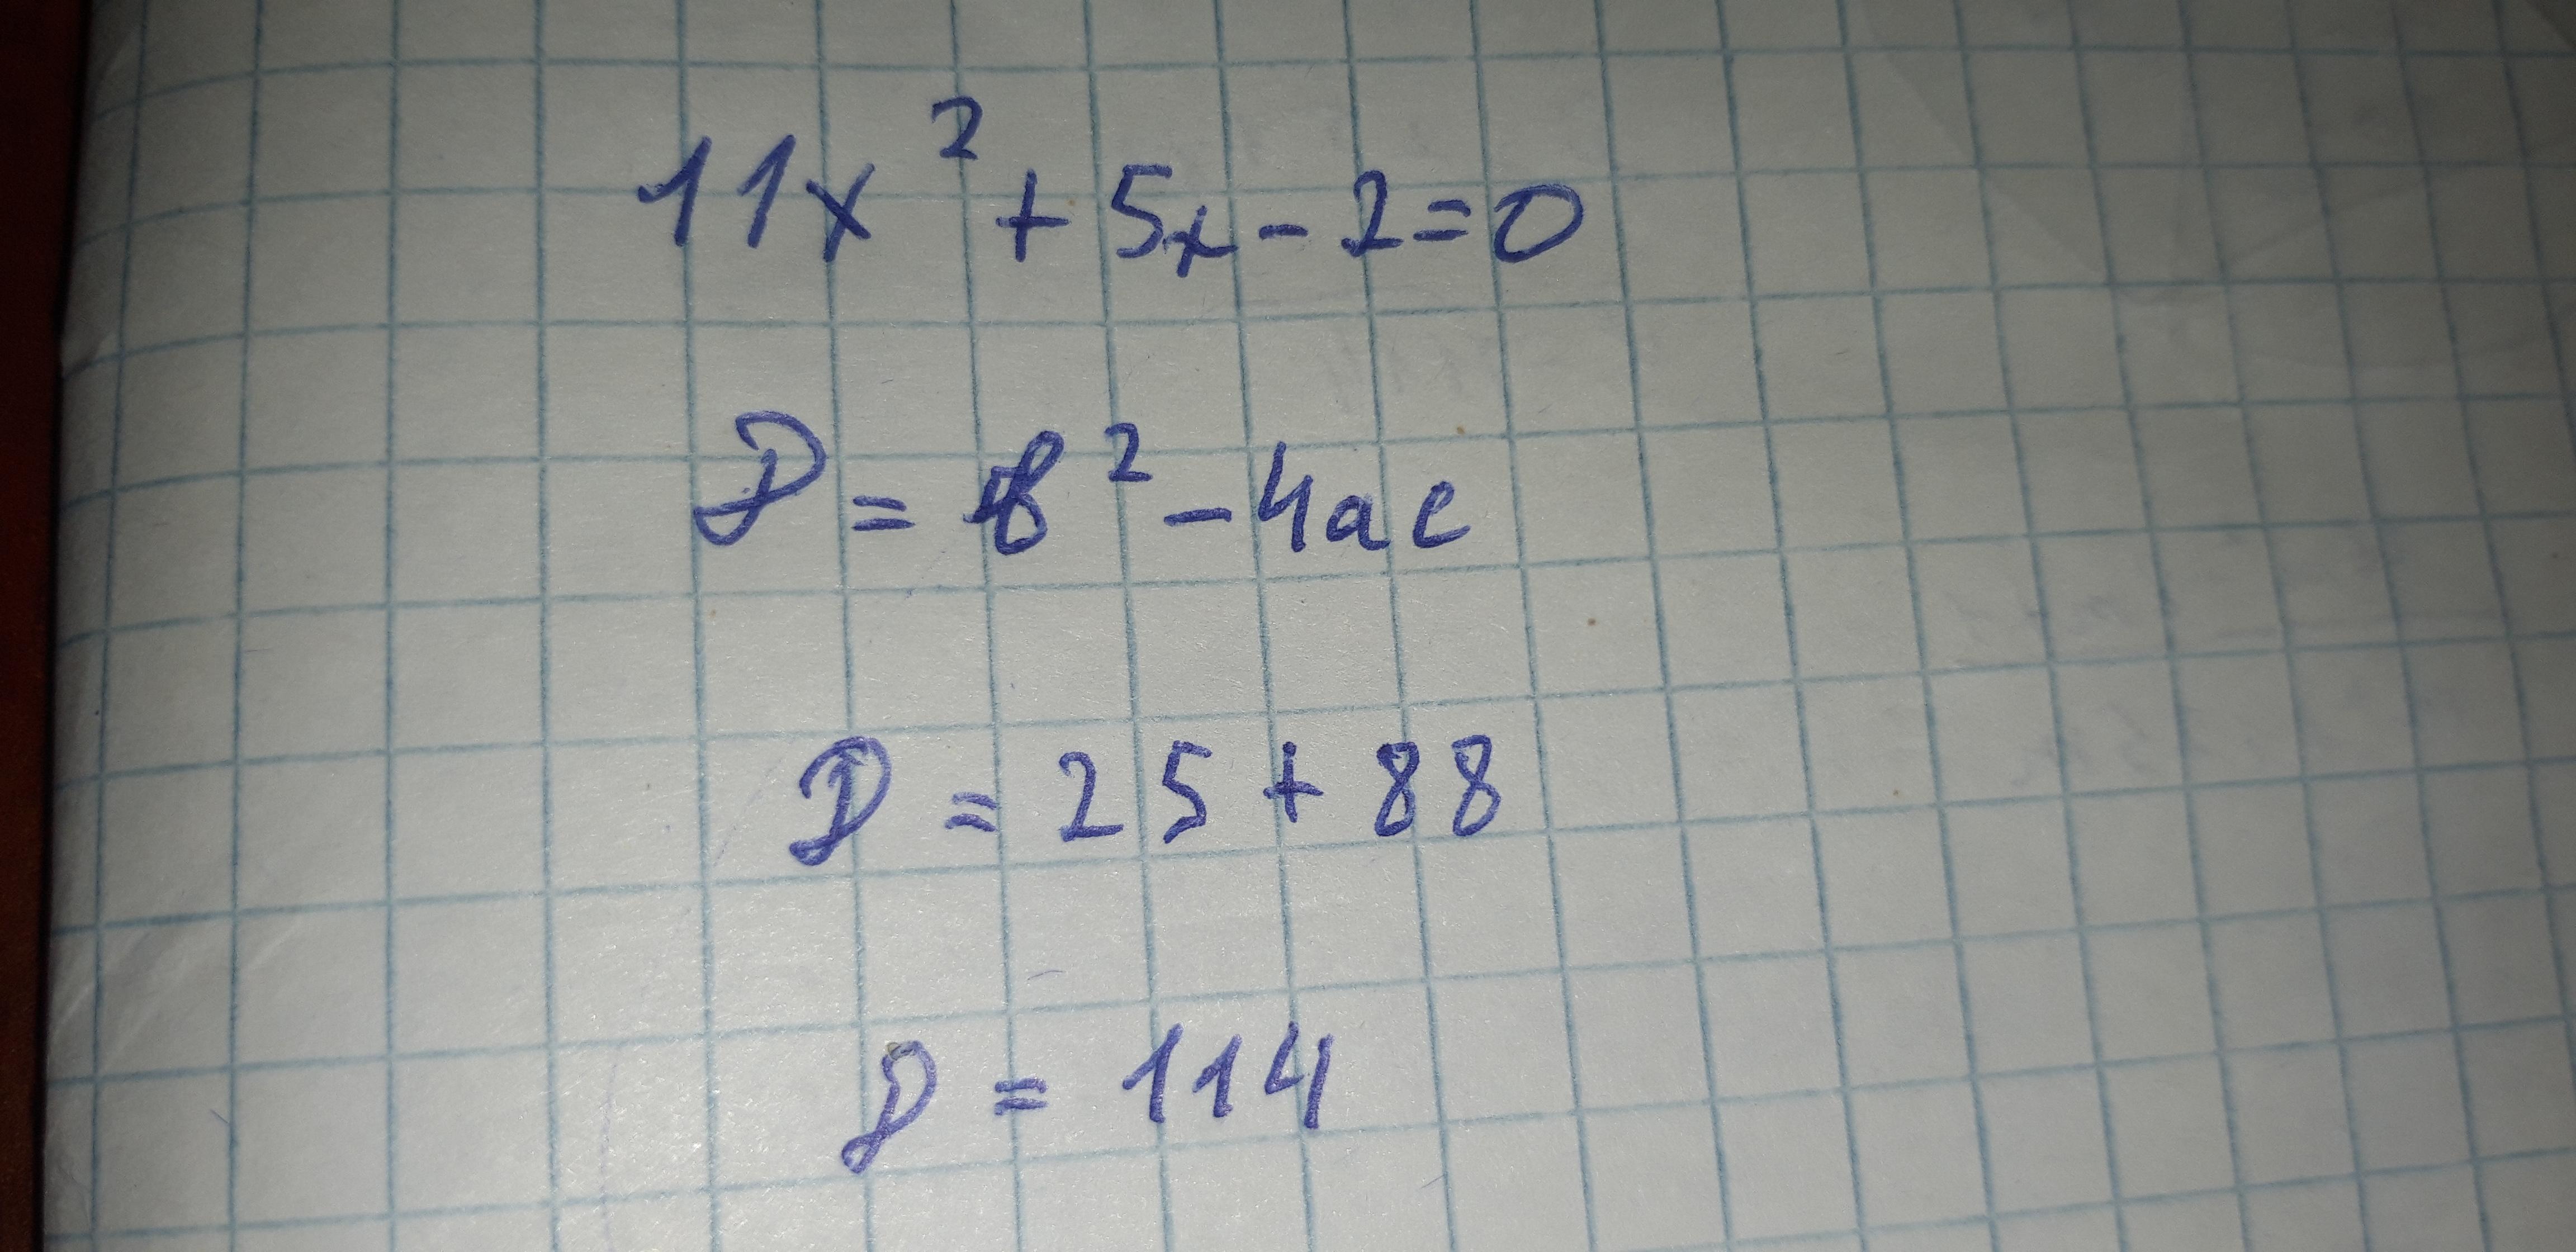 11x² + 5x - 2 = 0
D = b² - 4ac
D = 25 + 88
D = 114